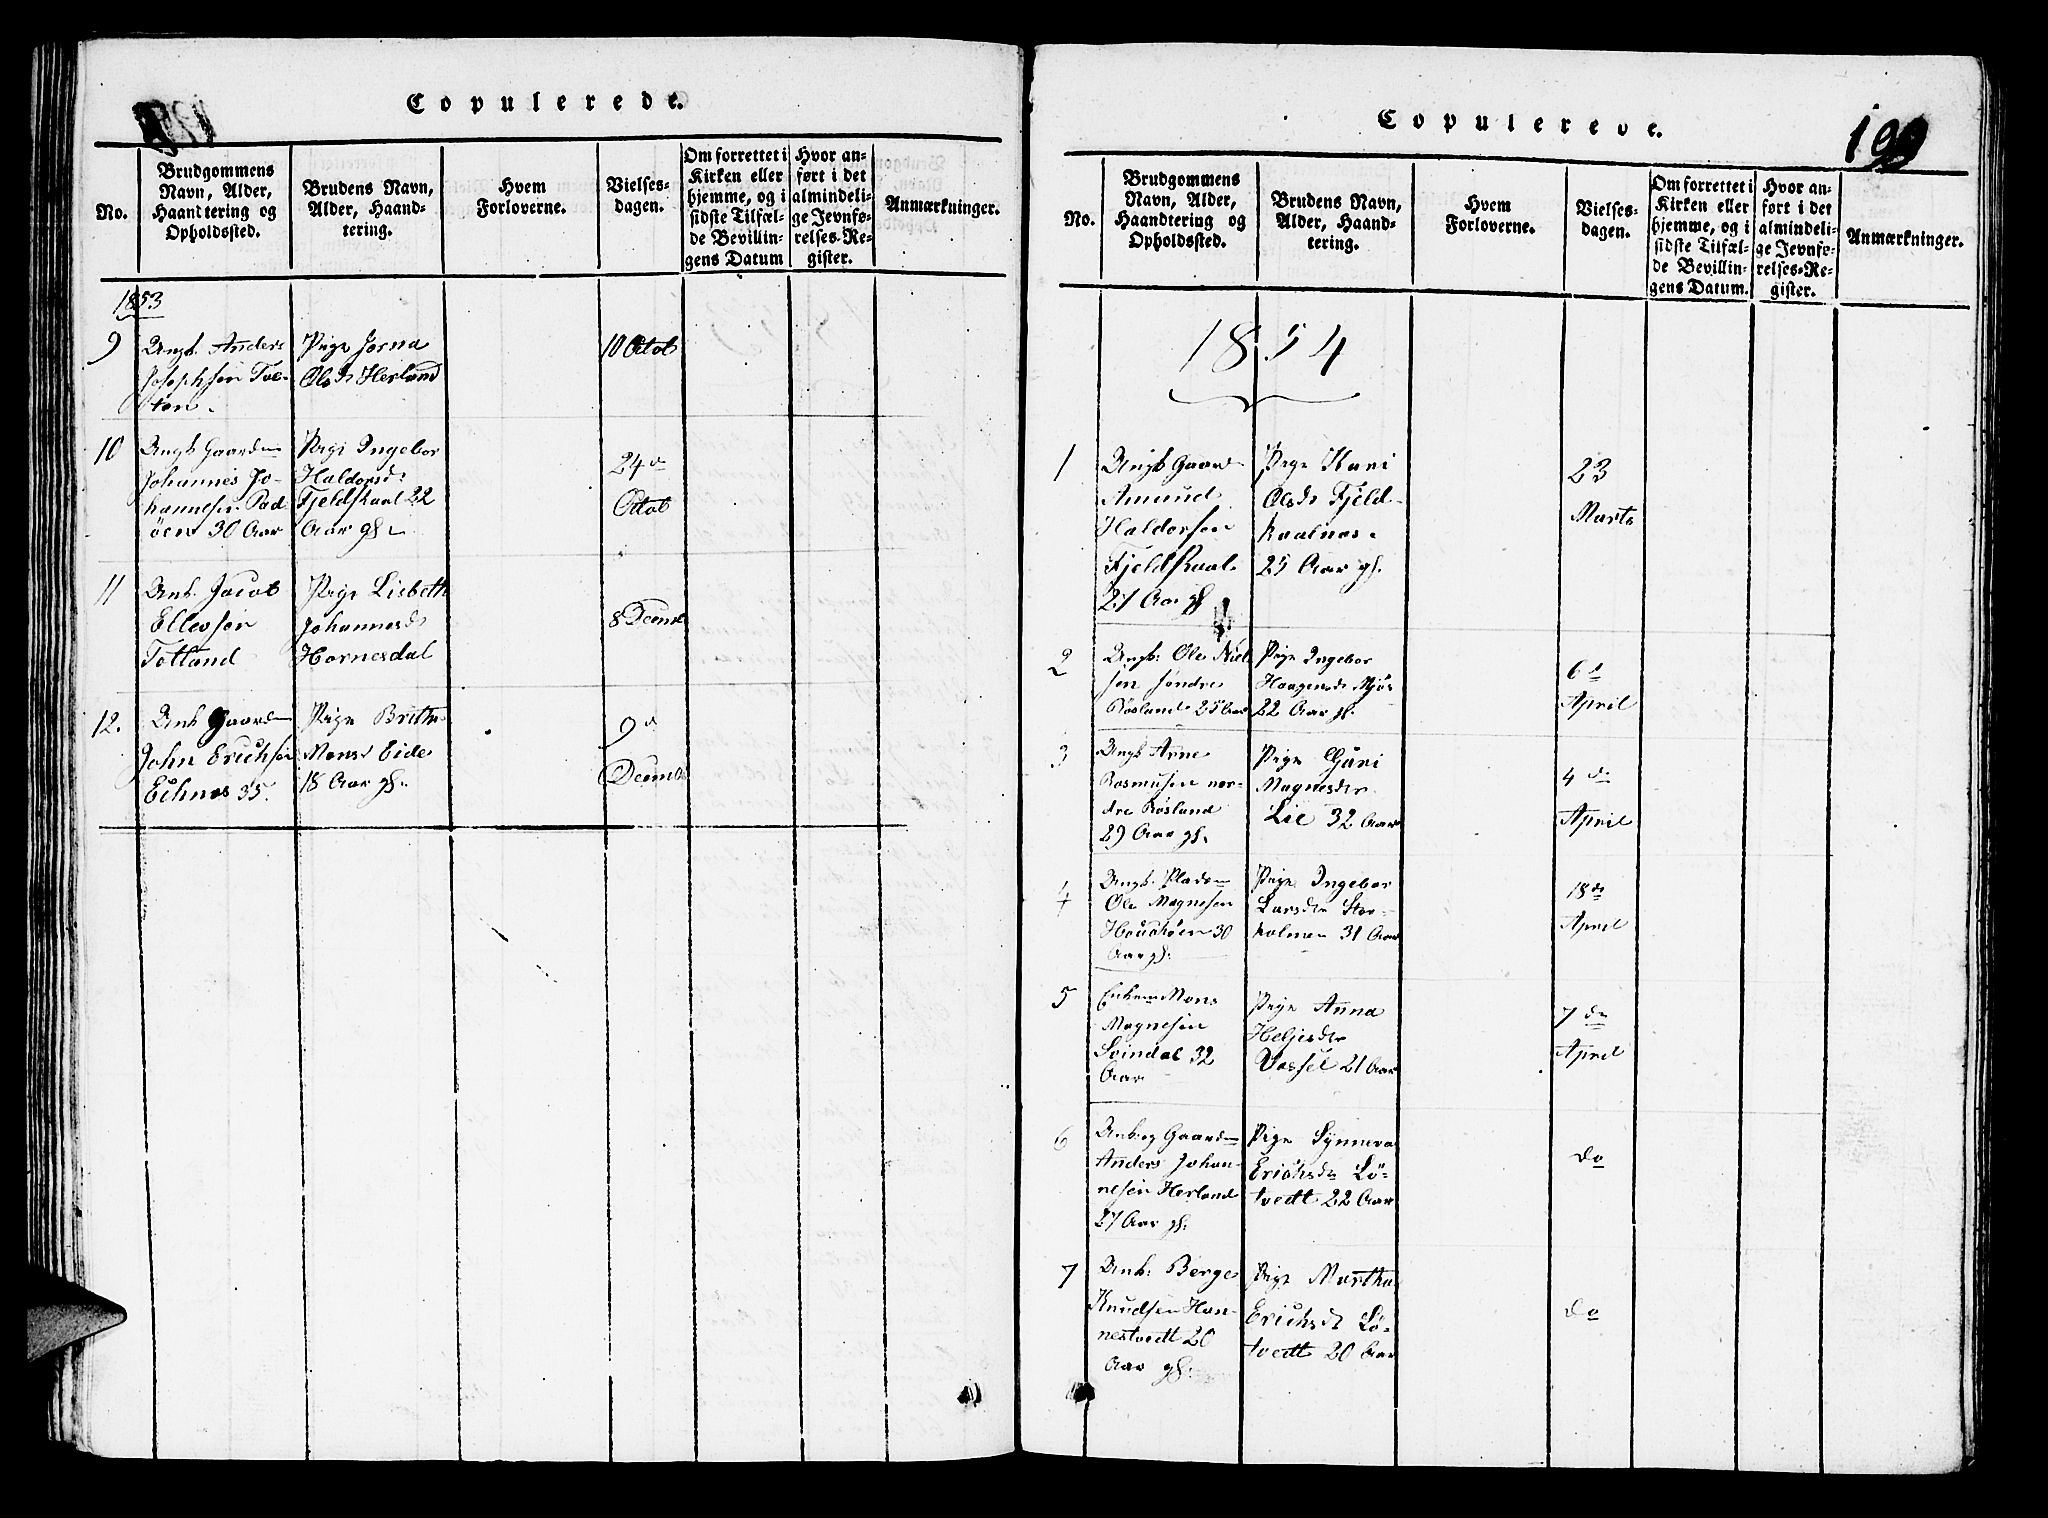 Copulerede.
No.
Brudgommens
Navn, Alder,
Haandtering og
Opholdssted.
Brudens Navn,
Alder, Haand-
tering.
Hvem
Forloverne.
Vielses-
dagen.
Om forrettet i
Kirken eller
hjemme, og i
sidste Tilfæl-
de Bevillin-
gens Datum
Hvor an-
ført i det
almindeli-
ge Jevnfø-
relses-Re-
gister.
Anmærkninger.
1853
9
Ungk. Anders
Josephsen Tve-
ten.
Pige Jorna
Olsdr Herland
10 Octob
10
Ungk Gaardm
Johannes Jo-
hannesen Pad-
øen 30 Aar
Pige Ingebor
Haldorsd:
Fjeldskaal 22
Aar gl.
24de
Octob
11
Unk. Jacob
Ellevsen
Totland
Pige Lisbeth
Johannesdr
Hornesdal
8 Decmb
12.
Unk Gaardm
John Erichsen
Echnes 35.
Pige Britha
Monsd Eide
18 Aar gl.
9de
Decemb
Copulerede.
No.
Brudgommens
Navn, Alder,
Haandtering og
Opholdssted.
Brudens Navn,
Alder, Haand-
tering.
Hvem
Forloverne.
Vielses-
dagen.
Om forrettet i
Kirken eller
hjemme, og i
sidste Tilfæl-
de Bevillin-
gens Datum.
Hvor an-
ført i det
almindeli-
ge Jevnfø-
relses-Re-
gister.
Anmærkninger.
1854
1
Ungk Gaard
Amund
Haldorsen
Fjeldskaal
27 Aar gl
Pige Kari
Olsdr Fjeld-
kaalnes
25 Aar gl.
23
Marts
2
Ungk: Ole Niel
sen søndre
Røsland 25 Aar
Pige Ingebor
Haagensdr Mjøs
22 Aar gl.
6te
April
3
Ungk Arne
Rasmusen nor-
dre Røsland
29 Aar gl.
Pige Guri
Magnesdr
Lie 32 Aar
4 de
April
4
Ungk. Pladsm
Ole Magnesen
30
Aar gl.
Pige Ingebor
Larsdr Stor-
holmen 31 Aar
18de
April
5
Enkem Mons
Magnesen
Svindal 32
Aar
Pige Anna
Heljesdr
Vassel 21 Aar
7 de
April
6
Unk og Gaardm
Anders Johan-
nesen Herland
27 Aar gl.
Pige Synneva
Erichsdr Lø-
tvedt 22 Aar
do
7
Unk: Berge
Knudsen Han-
nestvedt 20
Aar gl.
Pige Martha
Erichsdr Lø-
tvedt 20 Aar
do